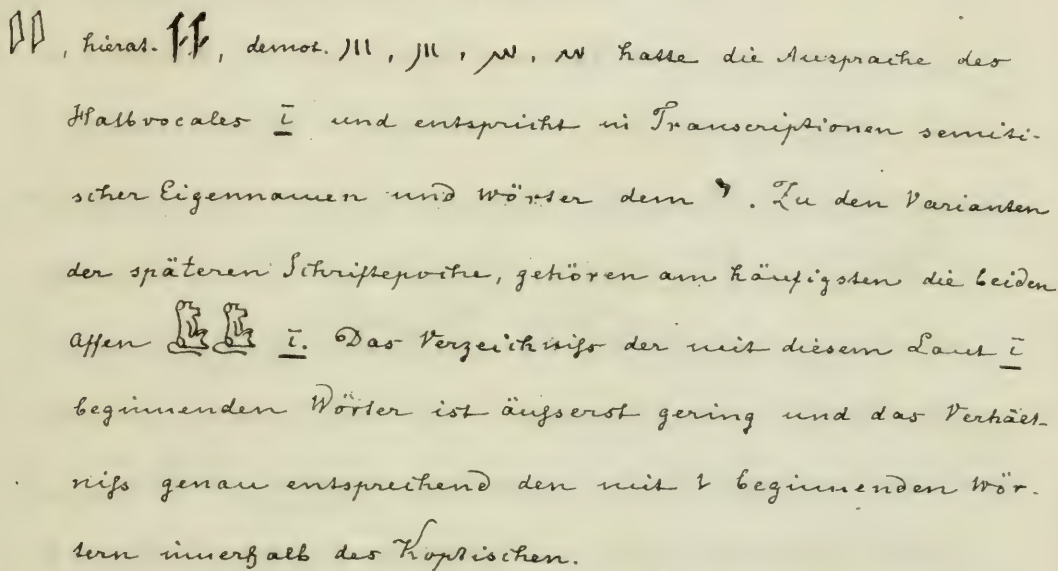 𓇌, hierat. , demot. , , , hatte die Aussprache des
Halbvocales ī und entspricht in Transcriptionen semiti-
scher Eigennamen und Wörter dem י. Zu den Varianten
der späteren Schriftepoche, gehören am häufigsten die beiden
Affen ī. Das Verzeichniſs der mit diesem Laut ī
beginnenden Wörter ist äuſserst gering und das Verhält-
niſs genau entsprechend den mit ⲓ beginnenden Wör-
tern innerhalb des Koptischen.